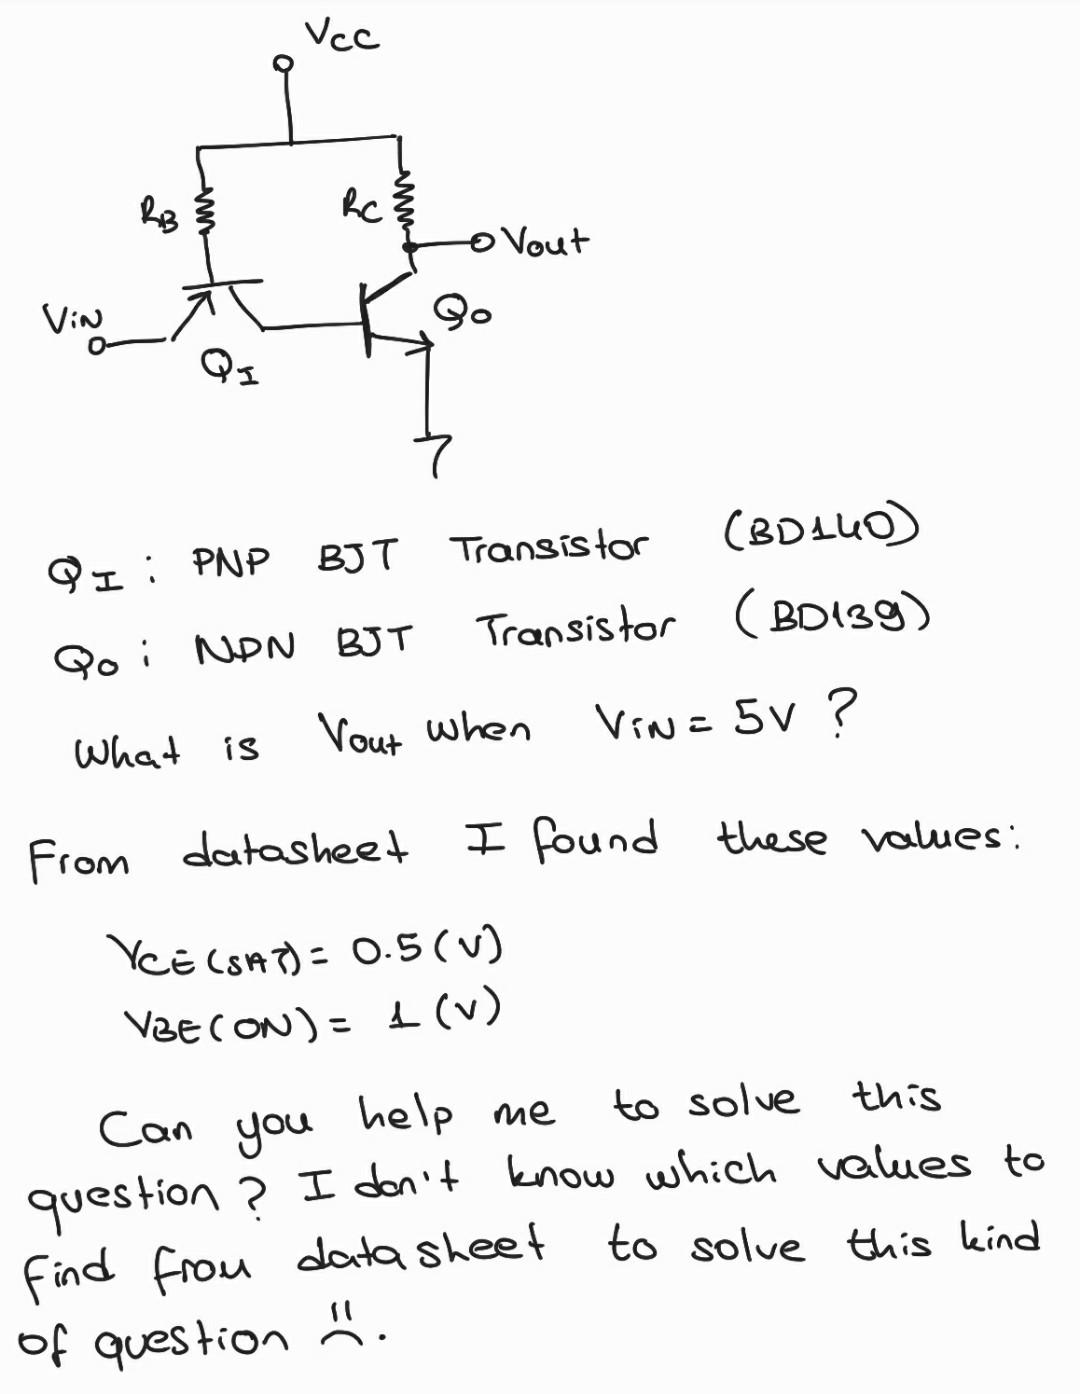 Vcc
RB
RC
Vout
ViN
QI
Qo
QI : PNP BJT Transistor (BD140)
Qo : NPN BJT Transistor (BD139)
What is Vout when ViN = 5V ?
From datasheet I found these values:
VCE(SAT) = 0.5 (V)
VBE(ON) = 1 (V)
Can you help me to solve this
question ? I don't know which values to
find from datasheet to solve this kind
of question :(.